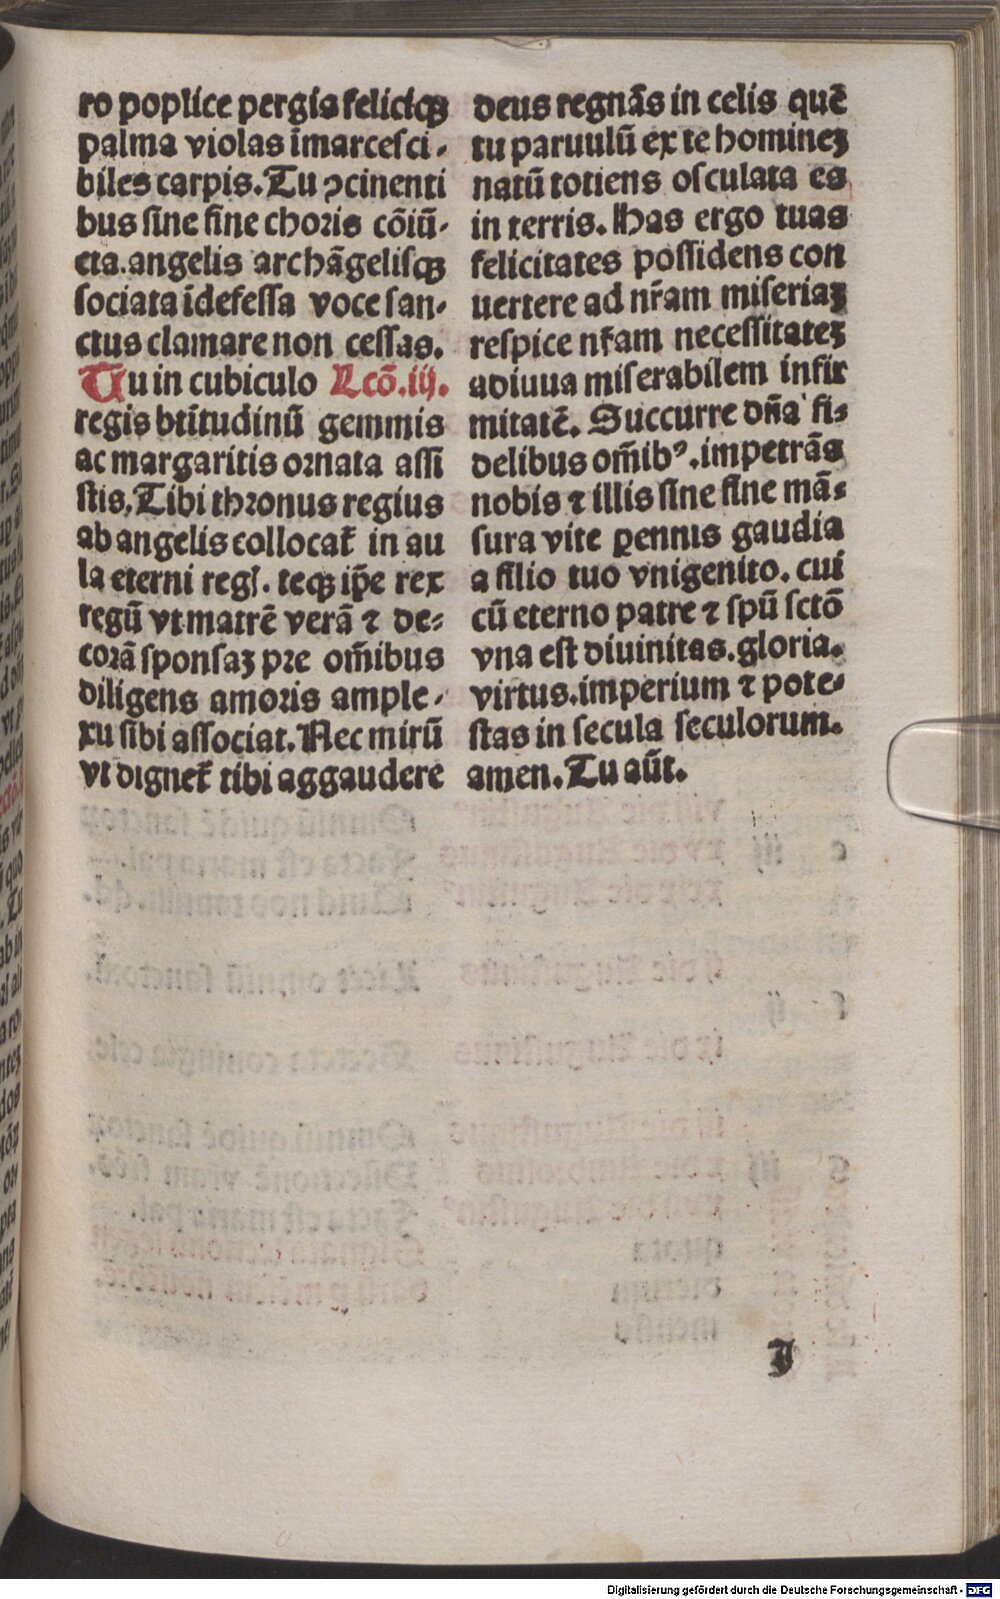 ro poplice pergis feliciqꝫ
palma violas īmarcesci-
biles carpis. Tu ꝯcinenti
bus sine fine choris cōiū-
cta. angelis archāgelisqꝫ
sociata īdefessa voce san-
ctus clamare non cessas.
Tu in cubiculo Lcō. iij.
regis btītudinū gemmis
ac margaritis ornata assi
stis. Tibi thronus regius
ab angelis collocat̄ in au
la eterni regꝭ. teqꝫ ip̄e rex
regū vt matrē verā ⁊ de-
corā sponsaꝫ pre om̄ibus
diligens amoris ample-
xu sibi associat. Nec mirū
vt dignet̄ tibi aggaudere
deus regnās in celis quē
tu paruulū ex te homineꝫ
natū totiens osculata es
in terris. Has ergo tuas
felicitates possidens con
uertere ad nr̄am miseriaꝫ
respice nr̄am necessitateꝫ
adiuua miserabilem infir
mitatē. Succurre dn̄a fi-
delibus om̄ibꝰ. impetrās
nobis ⁊ illis sine fine mā-
sura vite ꝑennis gaudia
a filio tuo vnigenito. cui
cū eterno patre ⁊ spū sctō
vna est diuinitas. gloria.
virtus. imperium ⁊ pote-
stas in secula seculorum.
amen. Tu aūt.
J
Digitalisierung gefördert durch die Deutsche Forschungsgemeinschaft - DFG